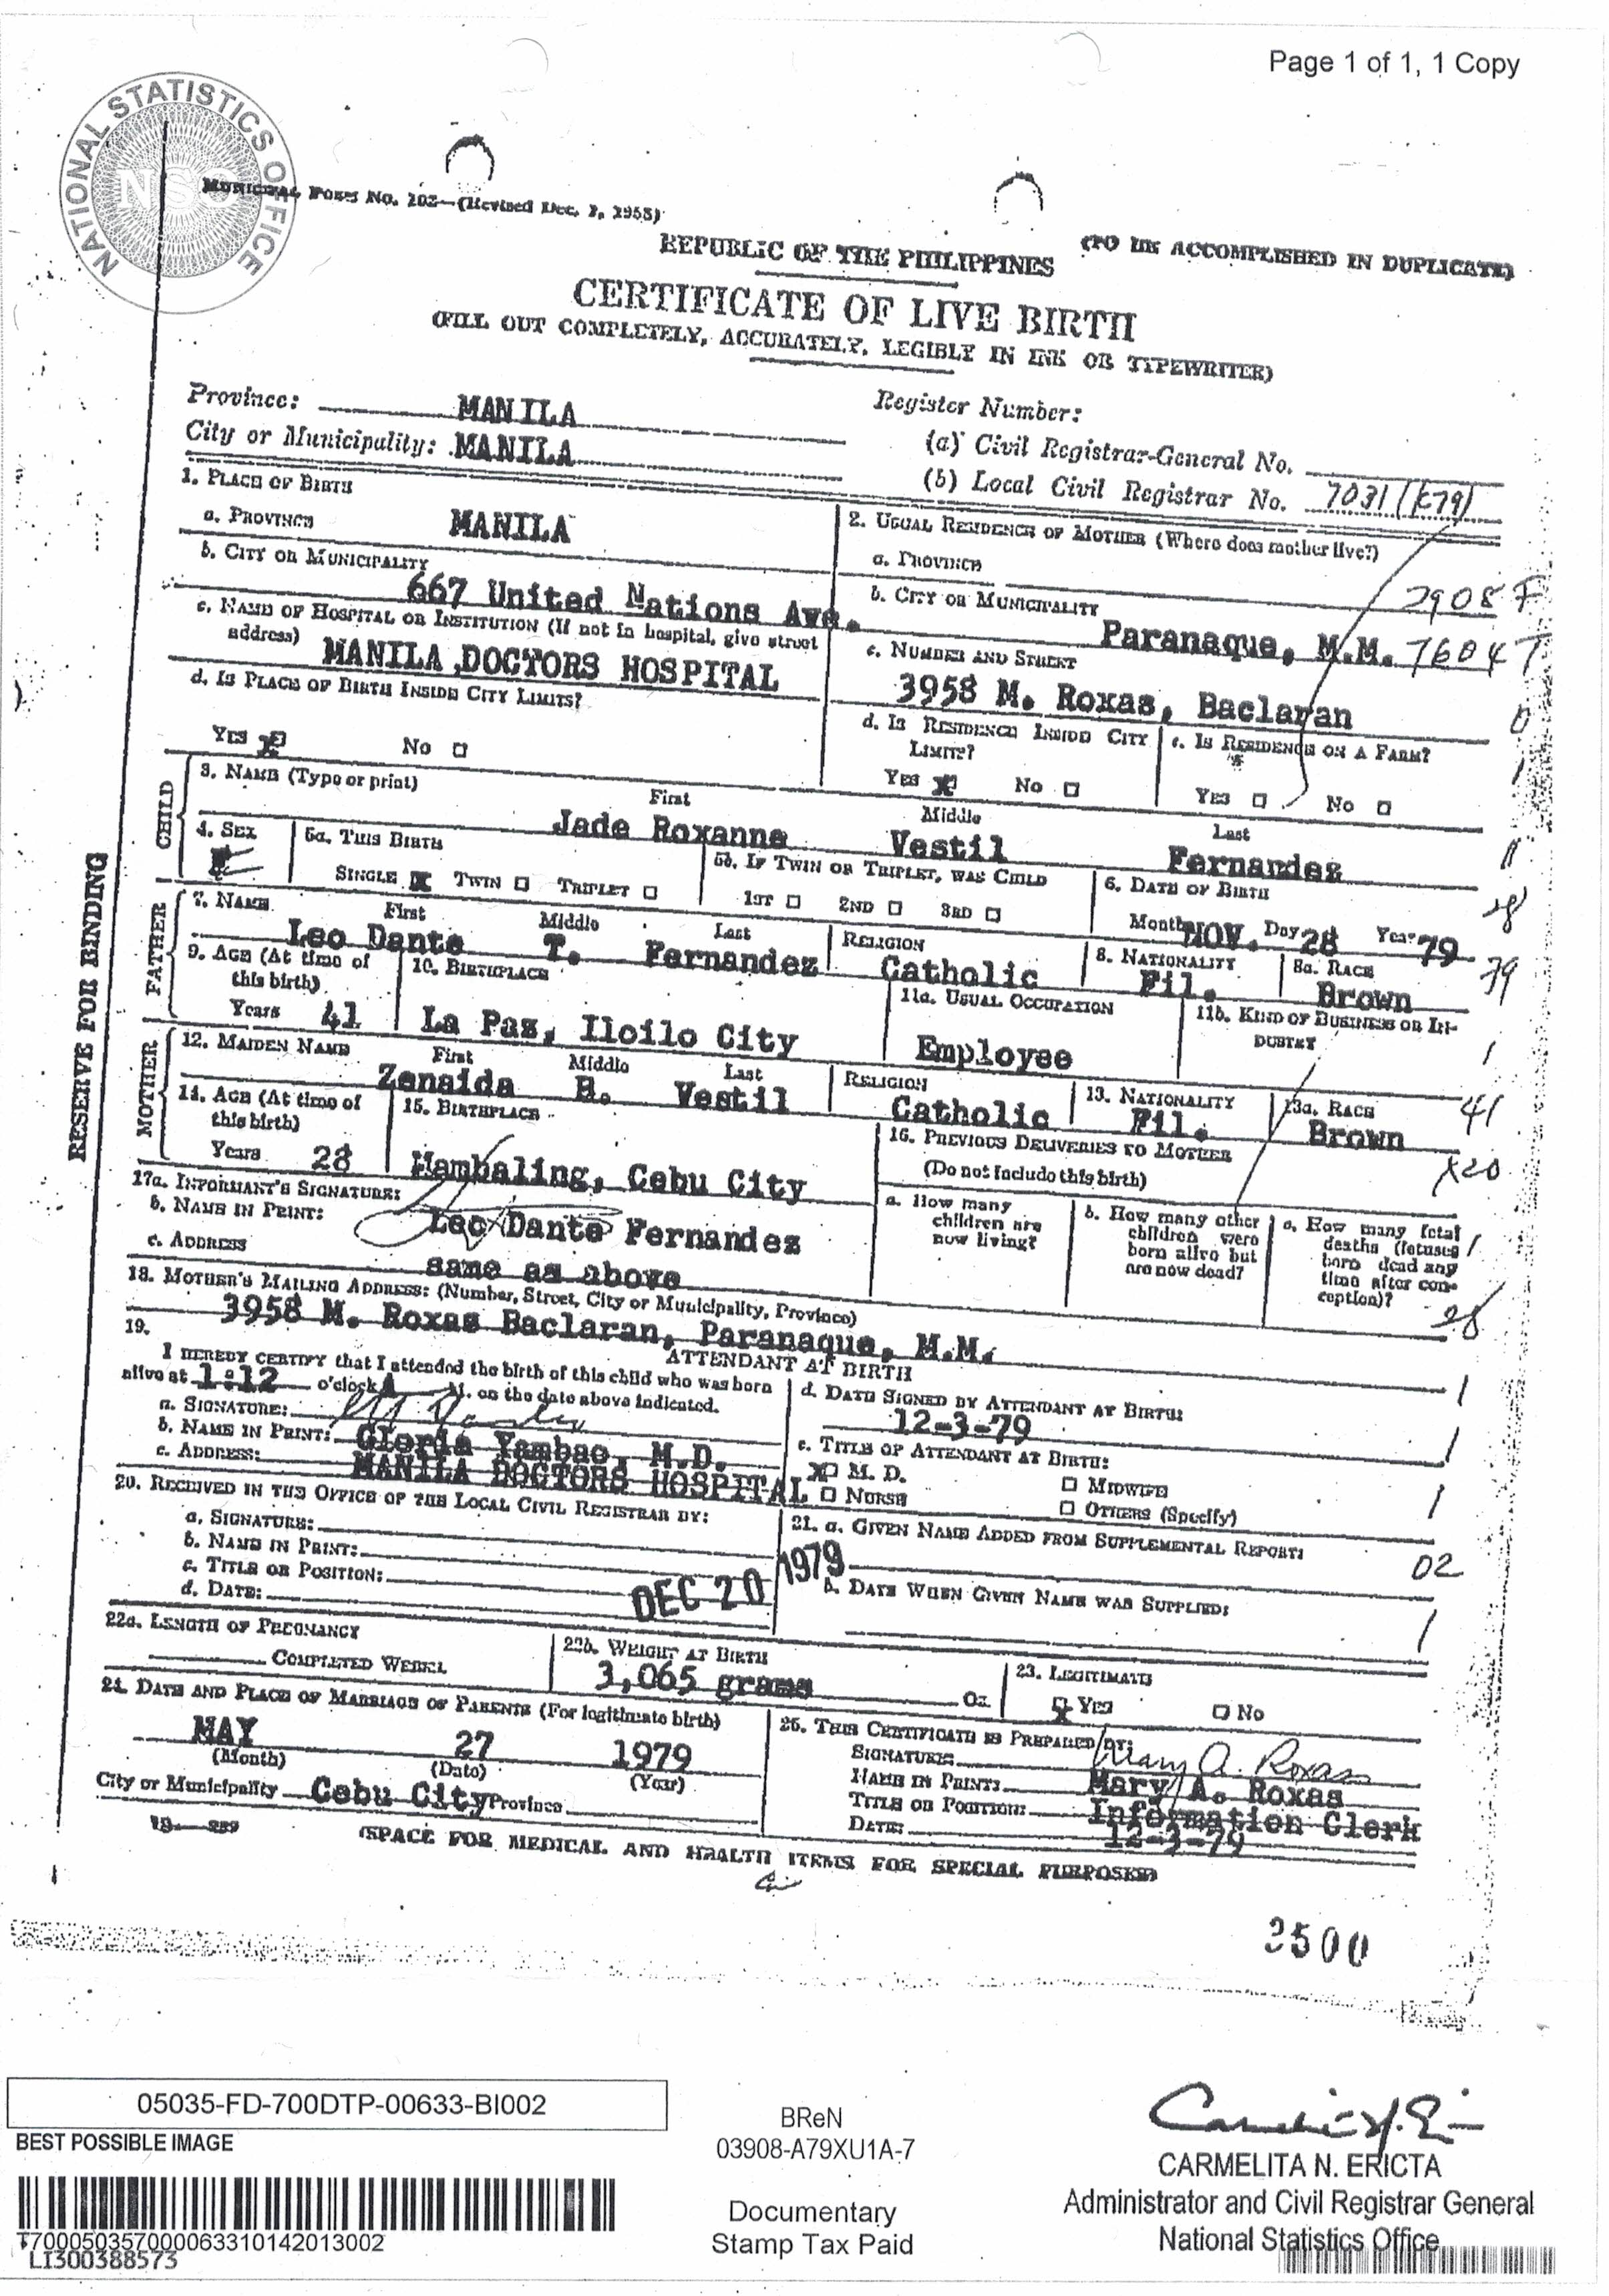 Page 1 of 1, 1 Copy
NATIONAL STATISTICS OFFICE
NSO
MUNICIPAL FORM No. 102—(Revised Dec. 1, 1958)
(TO BE ACCOMPLISHED IN DUPLICATE)
REPUBLIC OF THE PHILIPPINES
CERTIFICATE OF LIVE BIRTH
(FILL OUT COMPLETELY, ACCURATELY, LEGIBLY IN INK OR TYPEWRITER)
Province: MANILA
Register Number:
City or Municipality: MANILA
(a) Civil Registrar-General No.
(b) Local Civil Registrar No. 7031 (k79)
1. PLACE OF BIRTH
a. PROVINCE MANILA
b. CITY OR MUNICIPALITY
667 United Nations Ave.
c. NAME OF HOSPITAL OR INSTITUTION (If not in hospital, give street address)
MANILA DOCTORS HOSPITAL
d. IS PLACE OF BIRTH INSIDE CITY LIMITS?
YES NO
2. USUAL RESIDENCE OF MOTHER (Where does mother live?)
a. PROVINCE
2908 F
b. CITY OR MUNICIPALITY
Paranaque, M.M. 76047
c. NUMBER AND STREET
3958 M. Roxas, Baclaran
d. IS RESIDENCE INSIDE CITY LIMITS?
YES NO
e. IS RESIDENCE ON A FARM?
YES NO
RESERVE FOR BINDING
CHILD
3. NAME (Type or print) First Middle Last
Jade Roxanne Vestil Fernandez
4. SEX
F
5a. THIS BIRTH
SINGLE TWIN TRIPLET
5b. IF TWIN OR TRIPLET, WAS CHILD
1ST 2ND 3RD
6. DATE OF BIRTH
Month NOV. Day 28 Year 79
28
FATHER
7. NAME First Middle Last
Leo Dante T. Fernandez
RELIGION
Catholic
8. NATIONALITY
Fil.
8a. RACE
Brown
79
9. AGE (At time of this birth)
Years 41
10. BIRTHPLACE
La Paz, Iloilo City
11a. USUAL OCCUPATION
Employee
11b. KIND OF BUSINESS OR INDUSTRY
MOTHER
12. MAIDEN NAME First Middle Last
Zenaida B. Vestil
RELIGION
Catholic
13. NATIONALITY
Fil.
13a. RACE
Brown
41
14. AGE (At time of this birth)
Years 28
15. BIRTHPLACE
Mambaling, Cebu City
16. PREVIOUS DELIVERIES TO MOTHER
(Do not include this birth)
X20
a. How many children are now living?
b. How many other children were born alive but are now dead?
c. How many fetal deaths (fetuses born dead any time after conception)?
28
17a. INFORMANT'S SIGNATURE:
b. NAME IN PRINT: Leo Dante Fernandez
c. ADDRESS same as above
18. MOTHER'S MAILING ADDRESS: (Number, Street, City or Municipality, Province)
3958 M. Roxas Baclaran, Paranaque, M.M.
19. ATTENDANT AT BIRTH
I HEREBY CERTIFY that I attended the birth of this child who was born
alive at 1:12 o'clock A M. on the date above indicated.
a. SIGNATURE:
b. NAME IN PRINT: Gloria Yambao, M.D.
c. ADDRESS: MANILA DOCTORS HOSPITAL
d. DATE SIGNED BY ATTENDANT AT BIRTH:
12-3-79
e. TITLE OF ATTENDANT AT BIRTH:
M. D. MIDWIFE
NURSE OTHERS (Specify)
20. RECEIVED IN THE OFFICE OF THE LOCAL CIVIL REGISTRAR BY:
a. SIGNATURE:
b. NAME IN PRINT:
c. TITLE OR POSITION:
d. DATE: DEC 20 1979
21. a. GIVEN NAME ADDED FROM SUPPLEMENTAL REPORT:
02
b. DATE WHEN GIVEN NAME WAS SUPPLIED:
22a. LENGTH OF PREGNANCY
COMPLETED WEEKS.
22b. WEIGHT AT BIRTH
3,065 grams Oz.
23. LEGITIMATE
Yes No
24. DATE AND PLACE OF MARRIAGE OF PARENTS (For legitimate birth)
MAY 27 1979
(Month) (Date) (Year)
City or Municipality Cebu City Province
25. THIS CERTIFICATE IS PREPARED BY:
SIGNATURE: Mary A. Roxas
NAME IN PRINT: Mary A. Roxas
TITLE OR POSITION: Information Clerk
DATE: 12-3-79
(SPACE FOR MEDICAL AND HEALTH ITEMS FOR SPECIAL PURPOSES)
3500
05035-FD-700DTP-00633-BI002
BEST POSSIBLE IMAGE
T700050357000063310142013002
LI300388573
BReN
03908-A79XU1A-7
Documentary
Stamp Tax Paid
CARMELITA N. ERICTA
Administrator and Civil Registrar General
National Statistics Office